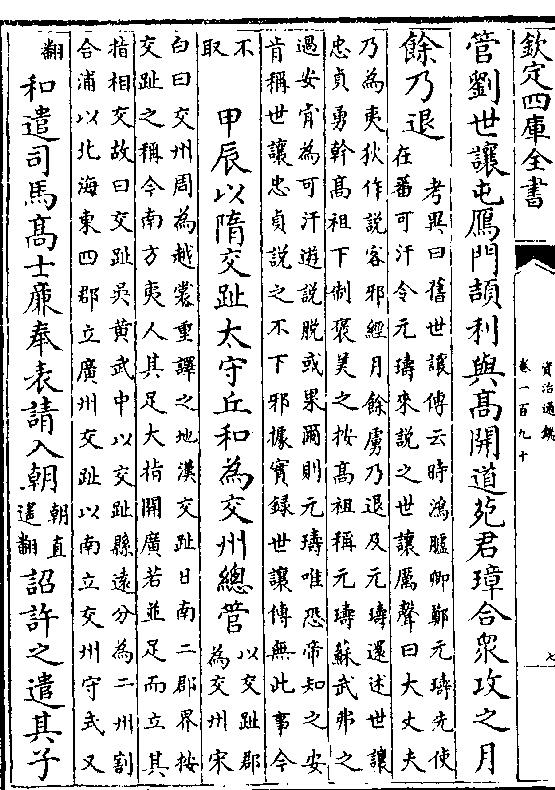 欽定四庫全書
資治通鑑
卷一百九十
七
管劉世讓屯鴈門頡利與髙開道苑君璋合衆攻之月
餘乃退
考異曰舊世讓傳云時鴻臚卿鄭元璹先使
在蕃可汗令元璹來説之世讓厲聲曰大丈夫
乃為夷狄作説客邪經月餘虜乃退及元璹還述世讓
忠貞勇幹髙祖下制褒美之按髙祖稱元璹蘇武弗之
過安肯為可汗遊説脱或果爾則元璹唯恐帝知之安
肯稱世讓忠貞説之不下邪據實録世讓傳無此事今
不
取
甲辰以隋交趾太守丘和為交州總管
以交趾郡
為交州宋
白曰交州周為越裳重譯之地漢交趾日南二郡界按
交趾之稱今南方夷人其足大指開廣若並足而立其
指相交故曰交趾吳黄武中以交趾縣遠分為二州割
合浦以北海東四郡立廣州交趾以南立交州守武又
翻
和遣司馬髙士廉奉表請入朝
朝直
遥翻
詔許之遣其子